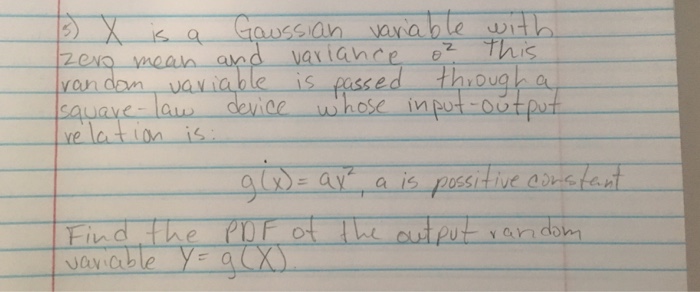 3) X is a Gaussian variable with
zero mean and variance σ² this
random variable is passed through a
square-law device whose input-output
relation is:
g(x) = ax², a is possitive constant
Find the PDF of the output random
variable Y = g(X)